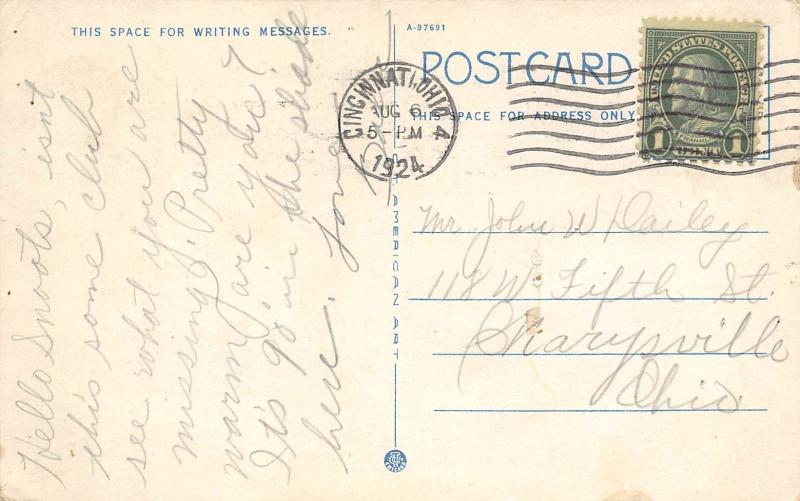 THIS SPACE FOR WRITING MESSAGES.
A-97691
POSTCARD
THIS SPACE FOR ADDRESS ONLY
CINCINNATI, OHIO 4
AUG 6
5-PM
1924
UNITED STATES POSTAGE
FRANKLIN
1 CENT 1
Hello Snoots, isnt
this some club
see what you are
missing! Pretty
warm are you?
It's 98° in the shade
here. Love
Mr John W Dailey
118 W Fifth St.
Marysville
Ohio
AMERICAN ART